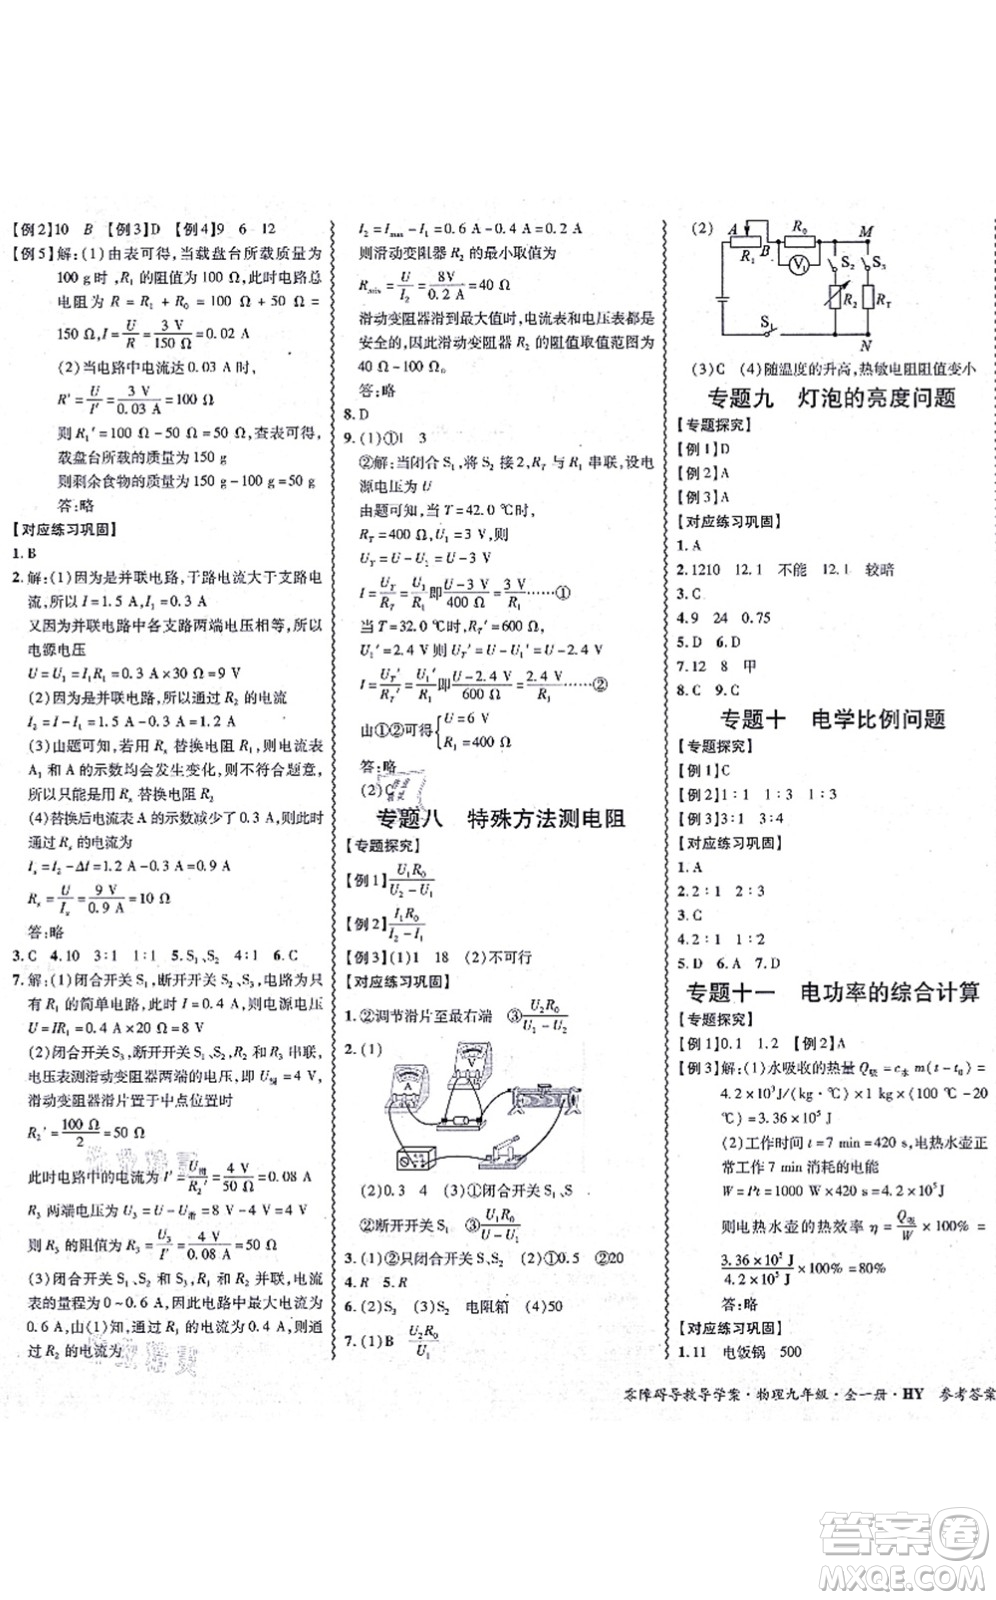 【例2】10 B 【例3】D 【例4】9 6 12
【例5】解:(1)由表可得,当载盘台所载质量为
100 g时,R₁的阻值为 100 Ω,此时电路总
电阻为 R = R₁ + R₀ = 100 Ω + 50 Ω =
150 Ω,I=U/R=3 V/150 Ω=0.02 A
(2)当电路中电流达 0.03 A时,
R'=U/I'=3 V/0.03 A=100 Ω
则 R₁'=100 Ω-50 Ω=50 Ω,查表可得,
载盘台所载的质量为 150 g
则剩余食物的质量为 150 g-100 g=50 g
答:略
【对应练习巩固】
1. B
2. 解:(1)因为是并联电路,干路电流大于支路电
流,所以 I=1.5 A,I₁=0.3 A
又因为并联电路中各支路两端电压相等,所以
电源电压
U=U₁=I₁R₁=0.3 A×30 Ω=9 V
(2)因为是并联电路,所以通过 R₂ 的电流
I₂=I-I₁=1.5 A-0.3 A=1.2 A
(3)由题可知,若用 Rₓ 替换电阻 R₁,则电流表
A₁ 和 A 的示数均会发生变化,不符合题意,
所以只能用 Rₓ 替换电阻 R₂
(4)替换后电流表 A 的示数减小了 0.3 A,此时
通过 Rₓ 的电流为
Iₓ=I₂-ΔI=1.2 A-0.3 A=0.9 A
Rₓ=U/Iₓ=9 V/0.9 A=10 Ω
答:略
3. C 4. 10 3∶1 1∶1 5. S₁、S₂ 4∶1 6. C
7. 解:(1)闭合开关 S₁,断开开关 S₂,电路为只
有 R₁ 的简单电路,已知此时电流,则电源电压
U=IR₁=0.4 A×20 Ω=8 V
(2)闭合开关 S₂,断开开关 S₁,R₂ 和 R₃ 串联,
电压表测滑动变阻器两端的电压,即 U滑=4 V
滑动变阻器滑片置于中点位置时
R₂'=100 Ω/2=50 Ω
此时电路中的电流为 I'=U滑/R₂'=4 V/50 Ω=0.08 A
R₃ 两端电压为 U₃=U-U滑=8 V-4 V=4 V
则 R₃ 的阻值为 R₃=U₃/I'=4 V/0.08 A=50 Ω
(3)闭合开关 S₁、S₂,R₁ 和 R₂ 并联,电流
表的量程为 0~0.6 A,所以电路中最大电流为
0.6 A,由(1)知,通过 R₁ 的电流为 0.4 A,则通
过 R₂ 的电流为
I₂=Iₘₐₓ-I₁=0.6 A-0.4 A=0.2 A
则滑动变阻器 R₂ 的最小取值为
Rₘᵢₙ=U/I₂=8V/0.2 A=40 Ω
滑动变阻器滑到最大值时,电流表和电压表都是
安全的,因此滑动变阻器 R₂ 的阻值取值范围为
40 Ω~100 Ω。
答:略
8. D
9. (1)①1 3
②解:当闭合 S₁,将 S₂ 接 2,R_T 与 R₁ 串联,设电
源电压为 U
由题可知,当 T=42.0 ℃时,
R_T=400 Ω,U₁=3 V
U_T=U-U₁=U-3 V
I=U_T/R_T=U₁/R₁即U-3 V/400 Ω=3 V/R₁……①
当 T=32.0 ℃时,R_T'=600 Ω,
U₁'=2.4 V 则 U_T'=U-U₁'=U-2.4 V
I=U_T'/R_T'=U₁'/R₁即U-2.4 V/600 Ω=2.4 V/R₁……②
由①②可得{U=6 V
R₁=400 Ω
答:略
(2)C
专题八 特殊方法测电阻
【专题探究】
【例1】U₁R₀/U₂-U₁
【例2】I₁R₀/I₂-I₁
【例3】(1)1 18 (2)不可行
【对应练习巩固】
1. ②调节滑片至最右端 ③U₂R₀/U₁-U₂
2. (1)
A
V
(2)0.3 4 (3)①闭合开关 S₁、S
②断开开关 S₁ ③U₁R₀/U-U₁
3. (1)②只闭合开关 S、S₂ (2)①0.5 ②20
4. R 5. R
6. (2)S₃ (3)S₂ 电阻箱 (4)50
7. (1)B U₂R₀/U₁
(2)
A
R₁
B
R₀
V₁
M
S₂
S₃
R₂
R_T
S₁
N
(3)C (4)随温度的升高,热敏电阻阻值变小
专题九 灯泡的亮度问题
【专题探究】
【例1】D
【例2】A
【例3】A
【对应练习巩固】
1. A
2. 1210 12.1 不能 12.1 较暗
3. C
4. 9 24 0.75
5. D 6. D
7. 12 8 甲
8. C 9. C
专题十 电学比例问题
【专题探究】
【例1】C
【例2】1∶1 1∶3
【例3】3∶1 3∶4
【对应练习巩固】
1. A
2. 2∶1 2∶1
3. C
4. 2∶1 1∶2
5. D 6. A 7. D
专题十一 电功率的综合计算
【专题探究】
【例1】0.1 1.2 【例2】A
【例3】解:(1)水吸收的热量 Q吸=c水m(t-t₀)=
4.2×10³J/(kg·℃)×1 kg×(100 ℃-20
℃)=3.36×10⁵J
(2)工作时间 t=7 min=420 s,电热水壶正
常工作 7 min 消耗的电能
W=Pt=1000 W×420 s=4.2×10⁵J
则电热水壶的热效率 η=Q吸/W×100%=
3.36×10⁵J/4.2×10⁵J×100%=80%
答:略
【对应练习巩固】
1. 11 电饭锅 500
零障碍导教导学案·物理九年级·全一册·HY 参考答案
答案卷
MXQE.COM